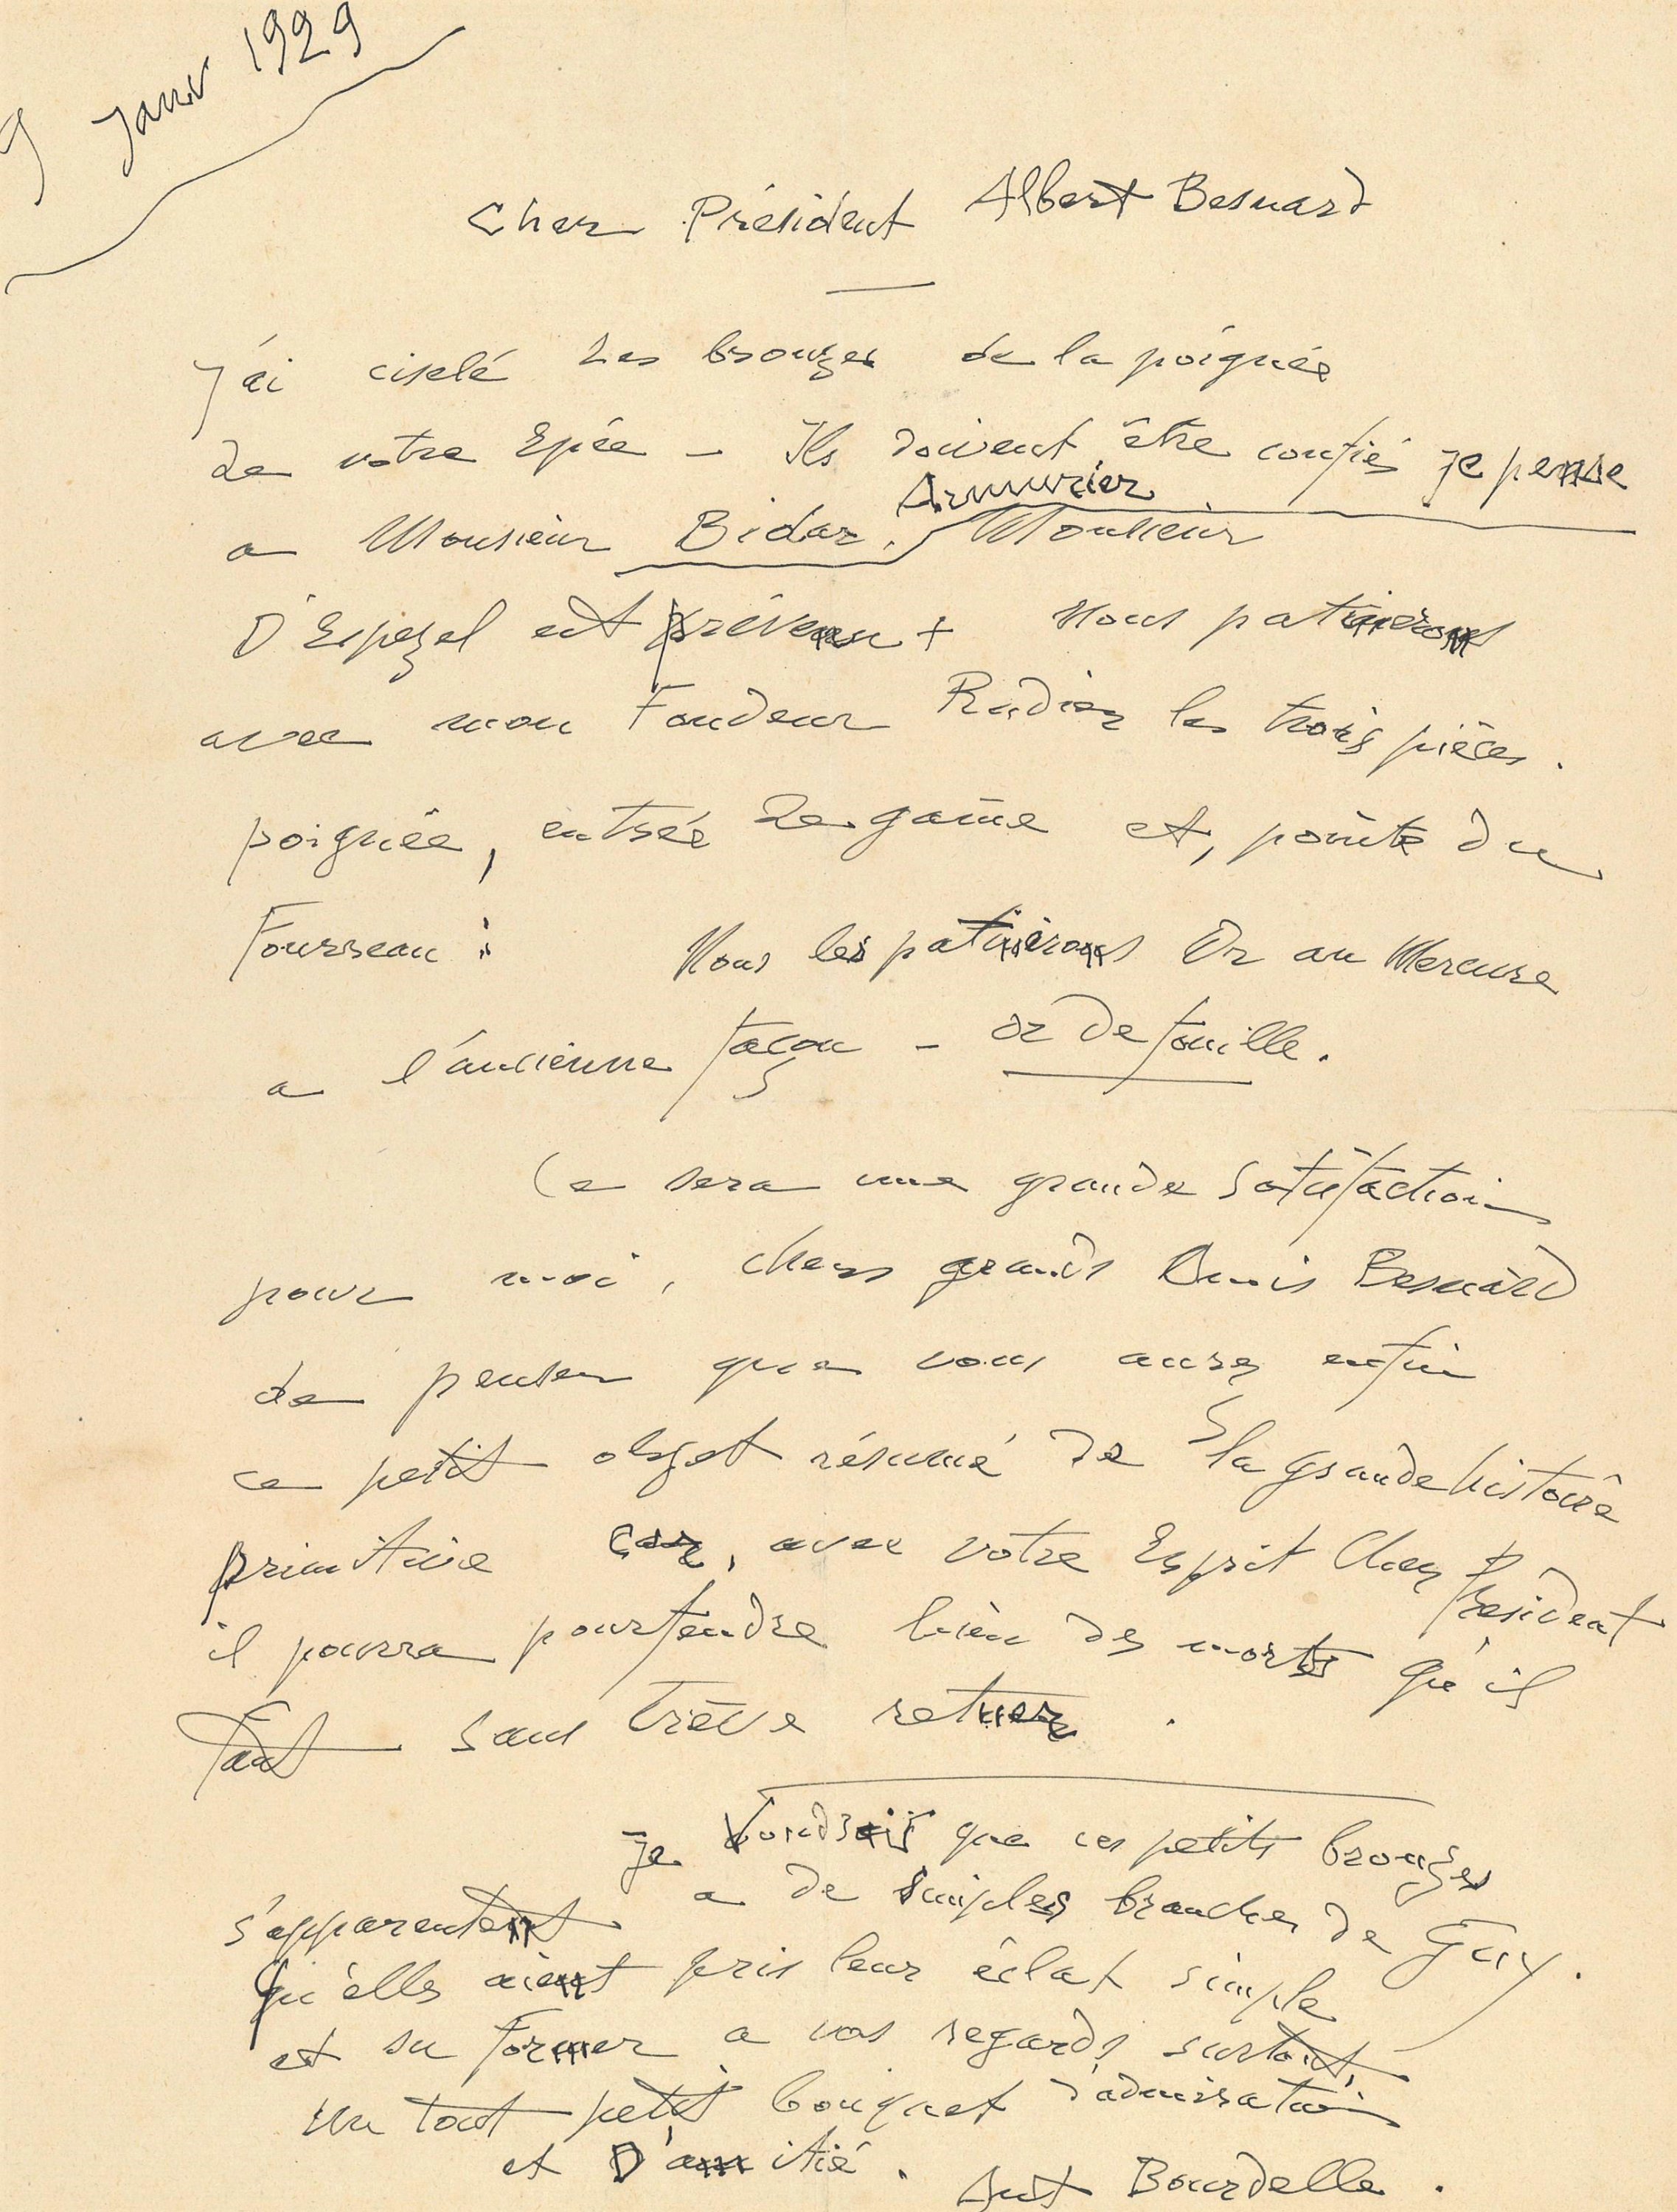 9 Janv 1929
Cher Président Albert Besnard
J'ai ciselé les bronzes de la poignée
de votre Epée – Ils doivent être confiés je pense
Armurier
a Monsieur Bidar. Monsieur
D'Espezel est prévenu + Nous patinerons
avec mon Fondeur Rudier les trois pièces.
poignée, entrée de gaîne et, pointe du
Fourreau : Nous les patinerons Or au Mercure
a l'ancienne façon – or de fouille.
Ce sera une grande satisfaction
pour moi, chers grands Amis Besnard
de penser que vous aurez enfin
ce petit objet résumé de la grande histoire
primitive car, avec votre Esprit Cher Président
il pourra pourfendre bien des morts qu'il
faut sans trève retuer.
Je voudrais que ces petits bronzes
s'apparentent a de simples branches de Guy.
Qu'elles aient pris leur éclat simple
et su former a vos regards surtout,
un tout petit bouquet d'admiration
et D'amitié. Ant Bourdelle.